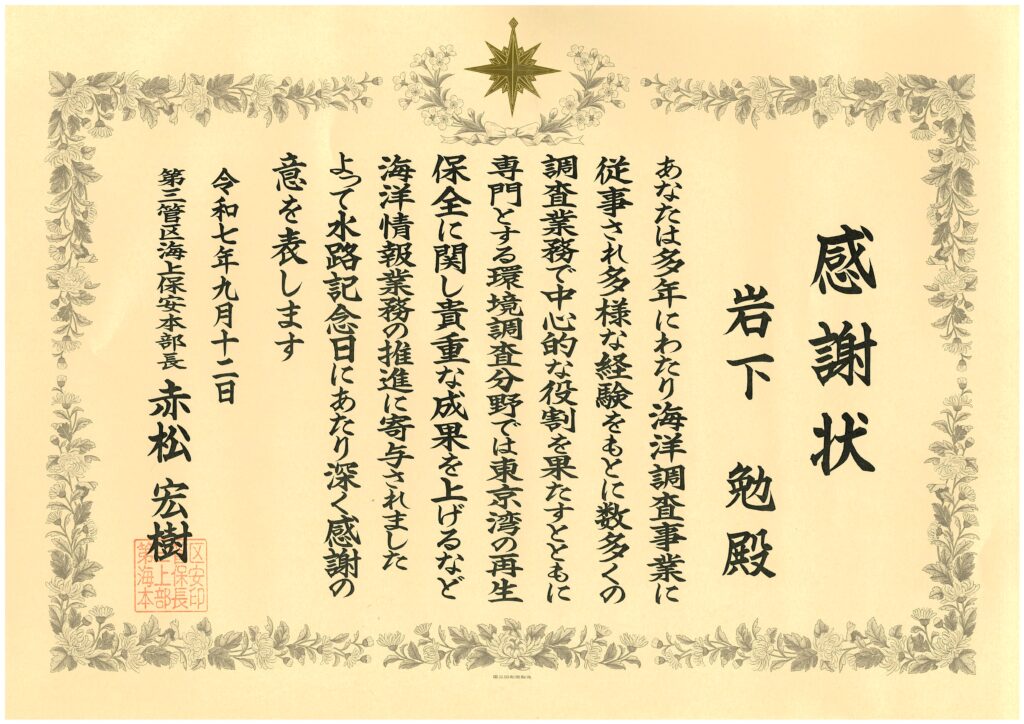 感謝状
岩下 勉 殿
あなたは多年にわたり海洋調査事業に
従事され多様な経験をもとに数多くの
調査業務で中心的な役割を果たすとともに
専門とする環境調査分野では東京湾の再生
保全に関し貴重な成果を上げるなど
海洋情報業務の推進に寄与されました
よって水路記念日にあたり深く感謝の
意を表します
令和七年九月十二日
第三管区海上保安本部長 赤松 宏樹